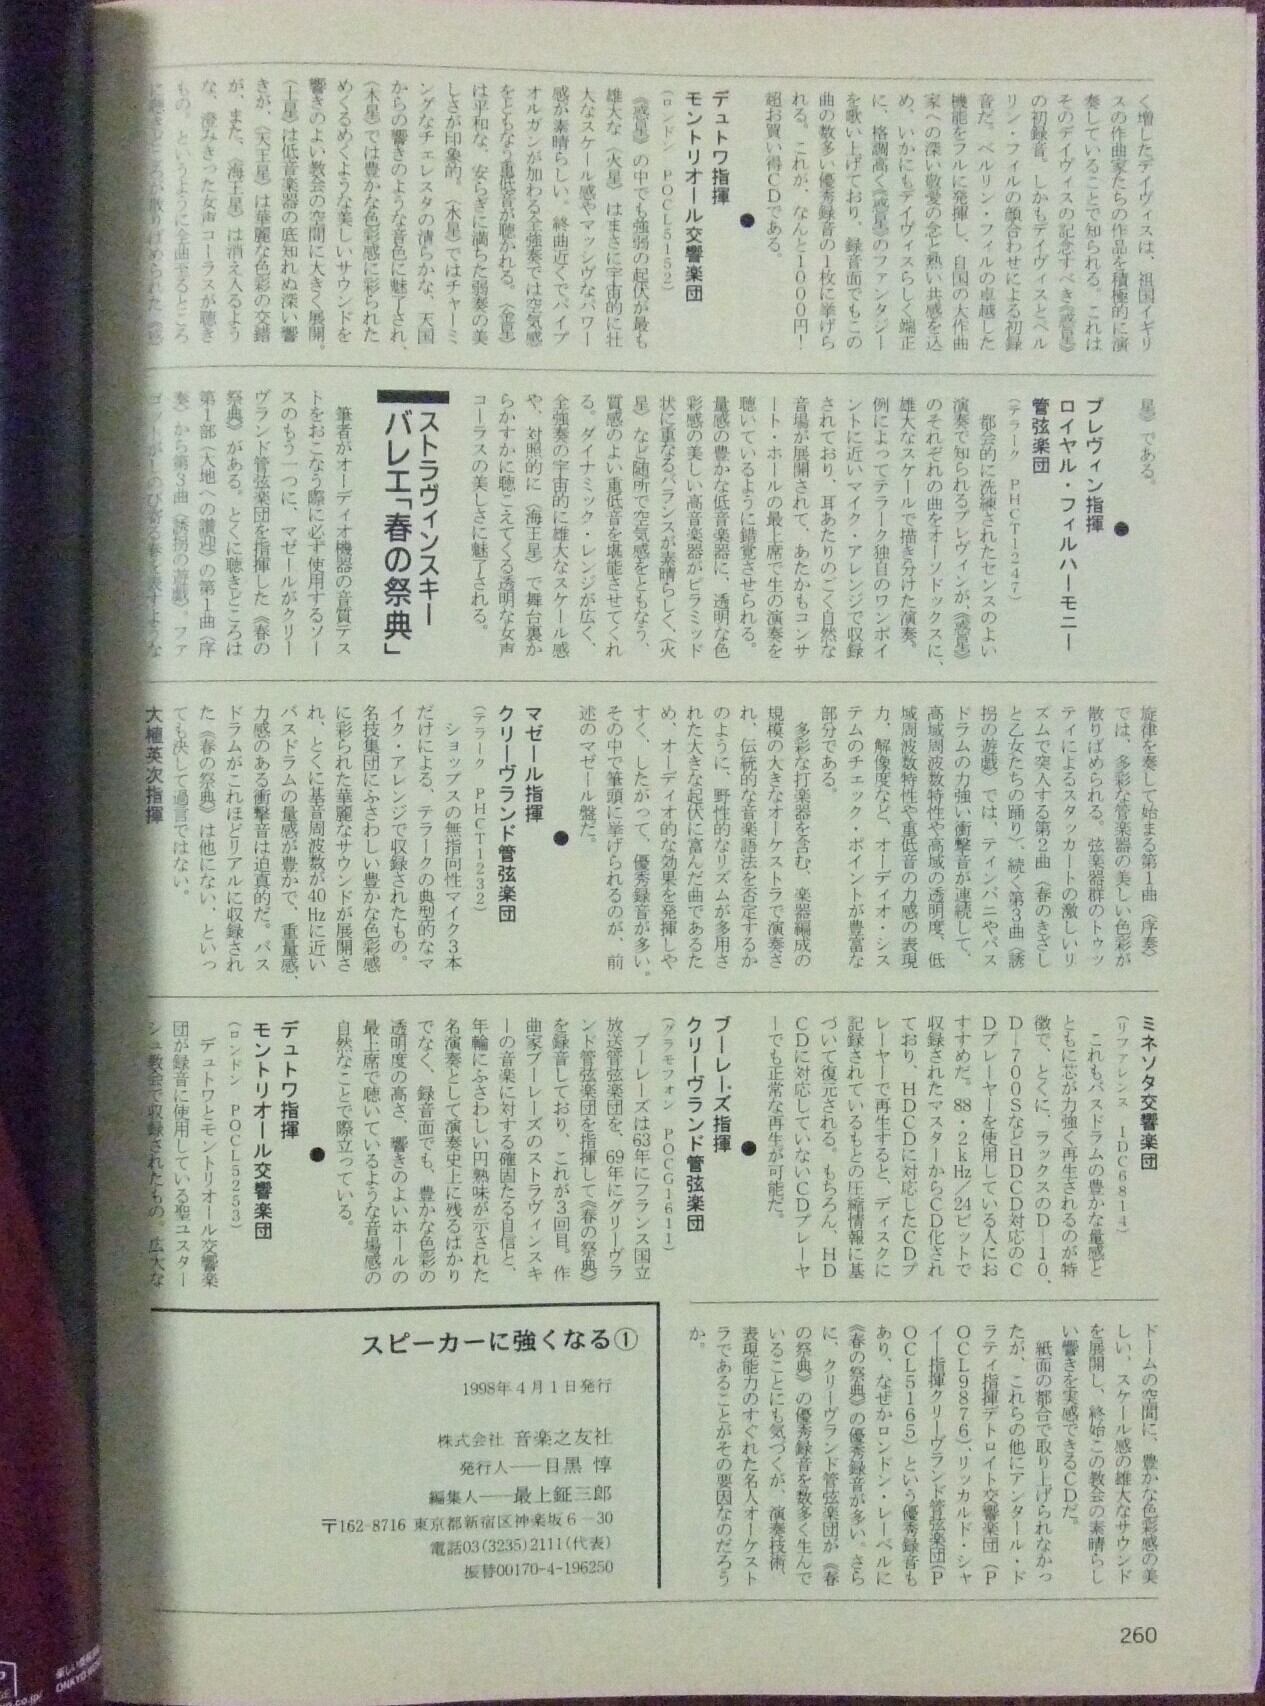 く増したデイヴィスは、祖国イギリ
スの作曲家たちの作品を積極的に演
奏していることで知られる。これは
そのデイヴィスの記念すべき《惑星》
の初録音。しかもデイヴィスとベル
リン・フィルの顔合わせによる初録
音だ。ベルリン・フィルの卓越した
機能をフルに発揮し、自国の大作曲
家への深い敬愛の念と熱い共感を込
め、いかにもデイヴィスらしく端正
に、格調高く《惑星》のファンタジー
を歌い上げており、録音面でもこの
曲の数多い優秀録音の1枚に挙げら
れる。これが、なんと1000円！
超お買い得CDである。
●
デュトワ指揮
モントリオール交響楽団
(ロンドン POCL5152)
《惑星》の中でも強弱の起伏が最も
雄大な〈火星〉はまさに宇宙的に壮
大なスケール感やマッシヴなパワー
感が素晴らしい。終曲近くでパイプ
オルガンが加わる全強奏では空気感
をともなう重低音が聴かれる。〈金星〉
は平和な、安らぎに満ちた弱奏の美
しさが印象的。〈水星〉ではチャーミ
ングなチェレスタの清らかな、天国
からの響きのような音色に魅了され、
〈木星〉では豊かな色彩感に彩られた
めくるめくような美しいサウンドを
響きのよい教会の空間に大きく展開。
〈土星〉は低音楽器の底知れぬ深い響
きが、〈天王星〉は華麗な色彩の交錯
が、また、〈海王星〉は消え入るよう
な、澄みきった女声コーラスが聴き
もの。というように全曲至るところ
に聴きどころが散りばめられた《惑
星》である。
●
プレヴィン指揮
ロイヤル・フィルハーモニー
管弦楽団
(テラーク PHCT1247)
都会的に洗練されたセンスのよい
演奏で知られるプレヴィンが、《惑星》
のそれぞれの曲をオーソドックスに、
雄大なスケールで描き分けた演奏。
例によってテラーク独自のワンポイ
ントに近いマイク・アレンジで収録
されており、耳あたりのごく自然な
音場が展開されて、あたかもコンサ
ート・ホールの最上席で生の演奏を
聴いているように錯覚させられる。
量感の豊かな低音楽器に、透明な色
彩感の美しい高音楽器がピラミッド
状に重なるバランスが素晴らしく、〈火
星〉など随所で空気感をともなう、
質感のよい重低音を堪能させてくれ
る。ダイナミック・レンジが広く、
全強奏の宇宙的に雄大なスケール感
や、対照的に〈海王星〉で舞台裏か
らかすかに聴こえてくる透明な女声
コーラスの美しさに魅了される。
ストラヴィンスキー
バレエ「春の祭典」
筆者がオーディオ機器の音質テス
トをおこなう際に必ず使用するソー
スのもう一つに、マゼールがクリー
ヴランド管弦楽団を指揮した《春の
祭典》がある。とくに聴きどころは
第1部〈大地への讃迎〉の第1曲〈序
奏〉から第3曲〈誘拐の遊戯〉。ファ
ゴットがしのび寄る春を表すような
旋律を奏して始まる第1曲〈序奏〉
では、多彩な管楽器の美しい色彩が
散りばめられる。弦楽器群のトゥッ
ティによるスタッカートの激しいリ
ズムで突入する第2曲〈春のきざし
と乙女たちの踊り〉、続く第3曲〈誘
拐の遊戯〉では、ティンパニやバス
ドラムの力強い衝撃音が連続して、
高域周波数特性や高域の透明度、低
域周波数特性や重低音の力感の表現
力、解像度など、オーディオ・シス
テムのチェック・ポイントが豊富な
部分である。
多彩な打楽器を含む、楽器編成の
規模の大きなオーケストラで演奏さ
れ、伝統的な音楽語法を否定するか
のように、野性的なリズムが多用さ
れた大きな起伏に富んだ曲であるた
め、オーディオ的な効果を発揮しや
すく、したがって、優秀録音が多い。
その中で筆頭に挙げられるのが、前
述のマゼール盤だ。
●
マゼール指揮
クリーヴランド管弦楽団
(テラーク PHCT1232)
ショップスの無指向性マイク3本
だけによる、テラークの典型的なマ
イク・アレンジで収録されたもの。
名技集団にふさわしい豊かな色彩感
に彩られた華麗なサウンドが展開さ
れ、とくに基音周波数が40Hzに近い
バスドラムの量感が豊かで、重量感、
力感のある衝撃音は迫真的だ。バス
ドラムがこれほどリアルに収録され
た《春の祭典》は他にない、といっ
ても決して過言ではない。
大植英次指揮
ミネソタ交響楽団
(リファレンス IDC6814)
これもバスドラムの豊かな量感と
ともに芯が力強く再生されるのが特
徴で、とくに、ラックスのD―10、
D―700SなどHDCD対応のC
Dプレーヤーを使用している人にお
すすめだ。88・2kHz／24ビットで
収録されたマスターからCD化され
ており、HDCDに対応したCDプ
レーヤーで再生すると、ディスクに
記録されているもとの圧縮情報に基
づいて復元される。もちろん、HD
CDに対応していないCDプレーヤ
ーでも正常な再生が可能だ。
●
ブーレーズ指揮
クリーヴランド管弦楽団
(グラモフォン POCG1611)
ブーレーズは63年にフランス国立
放送管弦楽団を、69年にクリーヴラ
ンド管弦楽団を指揮して《春の祭典》
を録音しており、これが3回目。作
曲家ブーレーズのストラヴィンスキ
ーの音楽に対する確固たる自信と、
年輪にふさわしい円熟味が示された
名演奏として演奏史上に残るばかり
でなく、録音面でも、豊かな色彩の
透明度の高さ、響きのよいホールの
最上席で聴いているような音場感の
自然なことで際立っている。
●
デュトワ指揮
モントリオール交響楽団
(ロンドン POCL5253)
デュトワとモントリオール交響楽
団が録音に使用している聖ユスター
シュ教会で収録されたもの。広大な
ドームの空間に、豊かな色彩感の美
しい、スケール感の雄大なサウンド
を展開し、終始この教会の素晴らし
い響きを実感できるCDだ。
紙面の都合で取り上げられなかっ
たが、これらの他にアンタール・ド
ラティ指揮デトロイト交響楽団（P
OCL9876）、リッカルド・シャ
イー指揮クリーヴランド管弦楽団（P
OCL5165）という優秀録音も
あり、なぜかロンドン・レーベルに
《春の祭典》の優秀録音が多い。さら
に、クリーヴランド管弦楽団が《春
の祭典》の優秀録音を数多く生んで
いることにも気づくが、演奏技術、
表現能力のすぐれた名人オーケスト
ラであることがその要因なのだろう
か。
スピーカーに強くなる①
1998年4月1日発行
株式会社 音楽之友社
発行人──目黒 惇
編集人──最上鉦三郎
〒162-8716 東京都新宿区神楽坂6－30
電話03(3235)2111(代表)
振替00170-4-196250
260